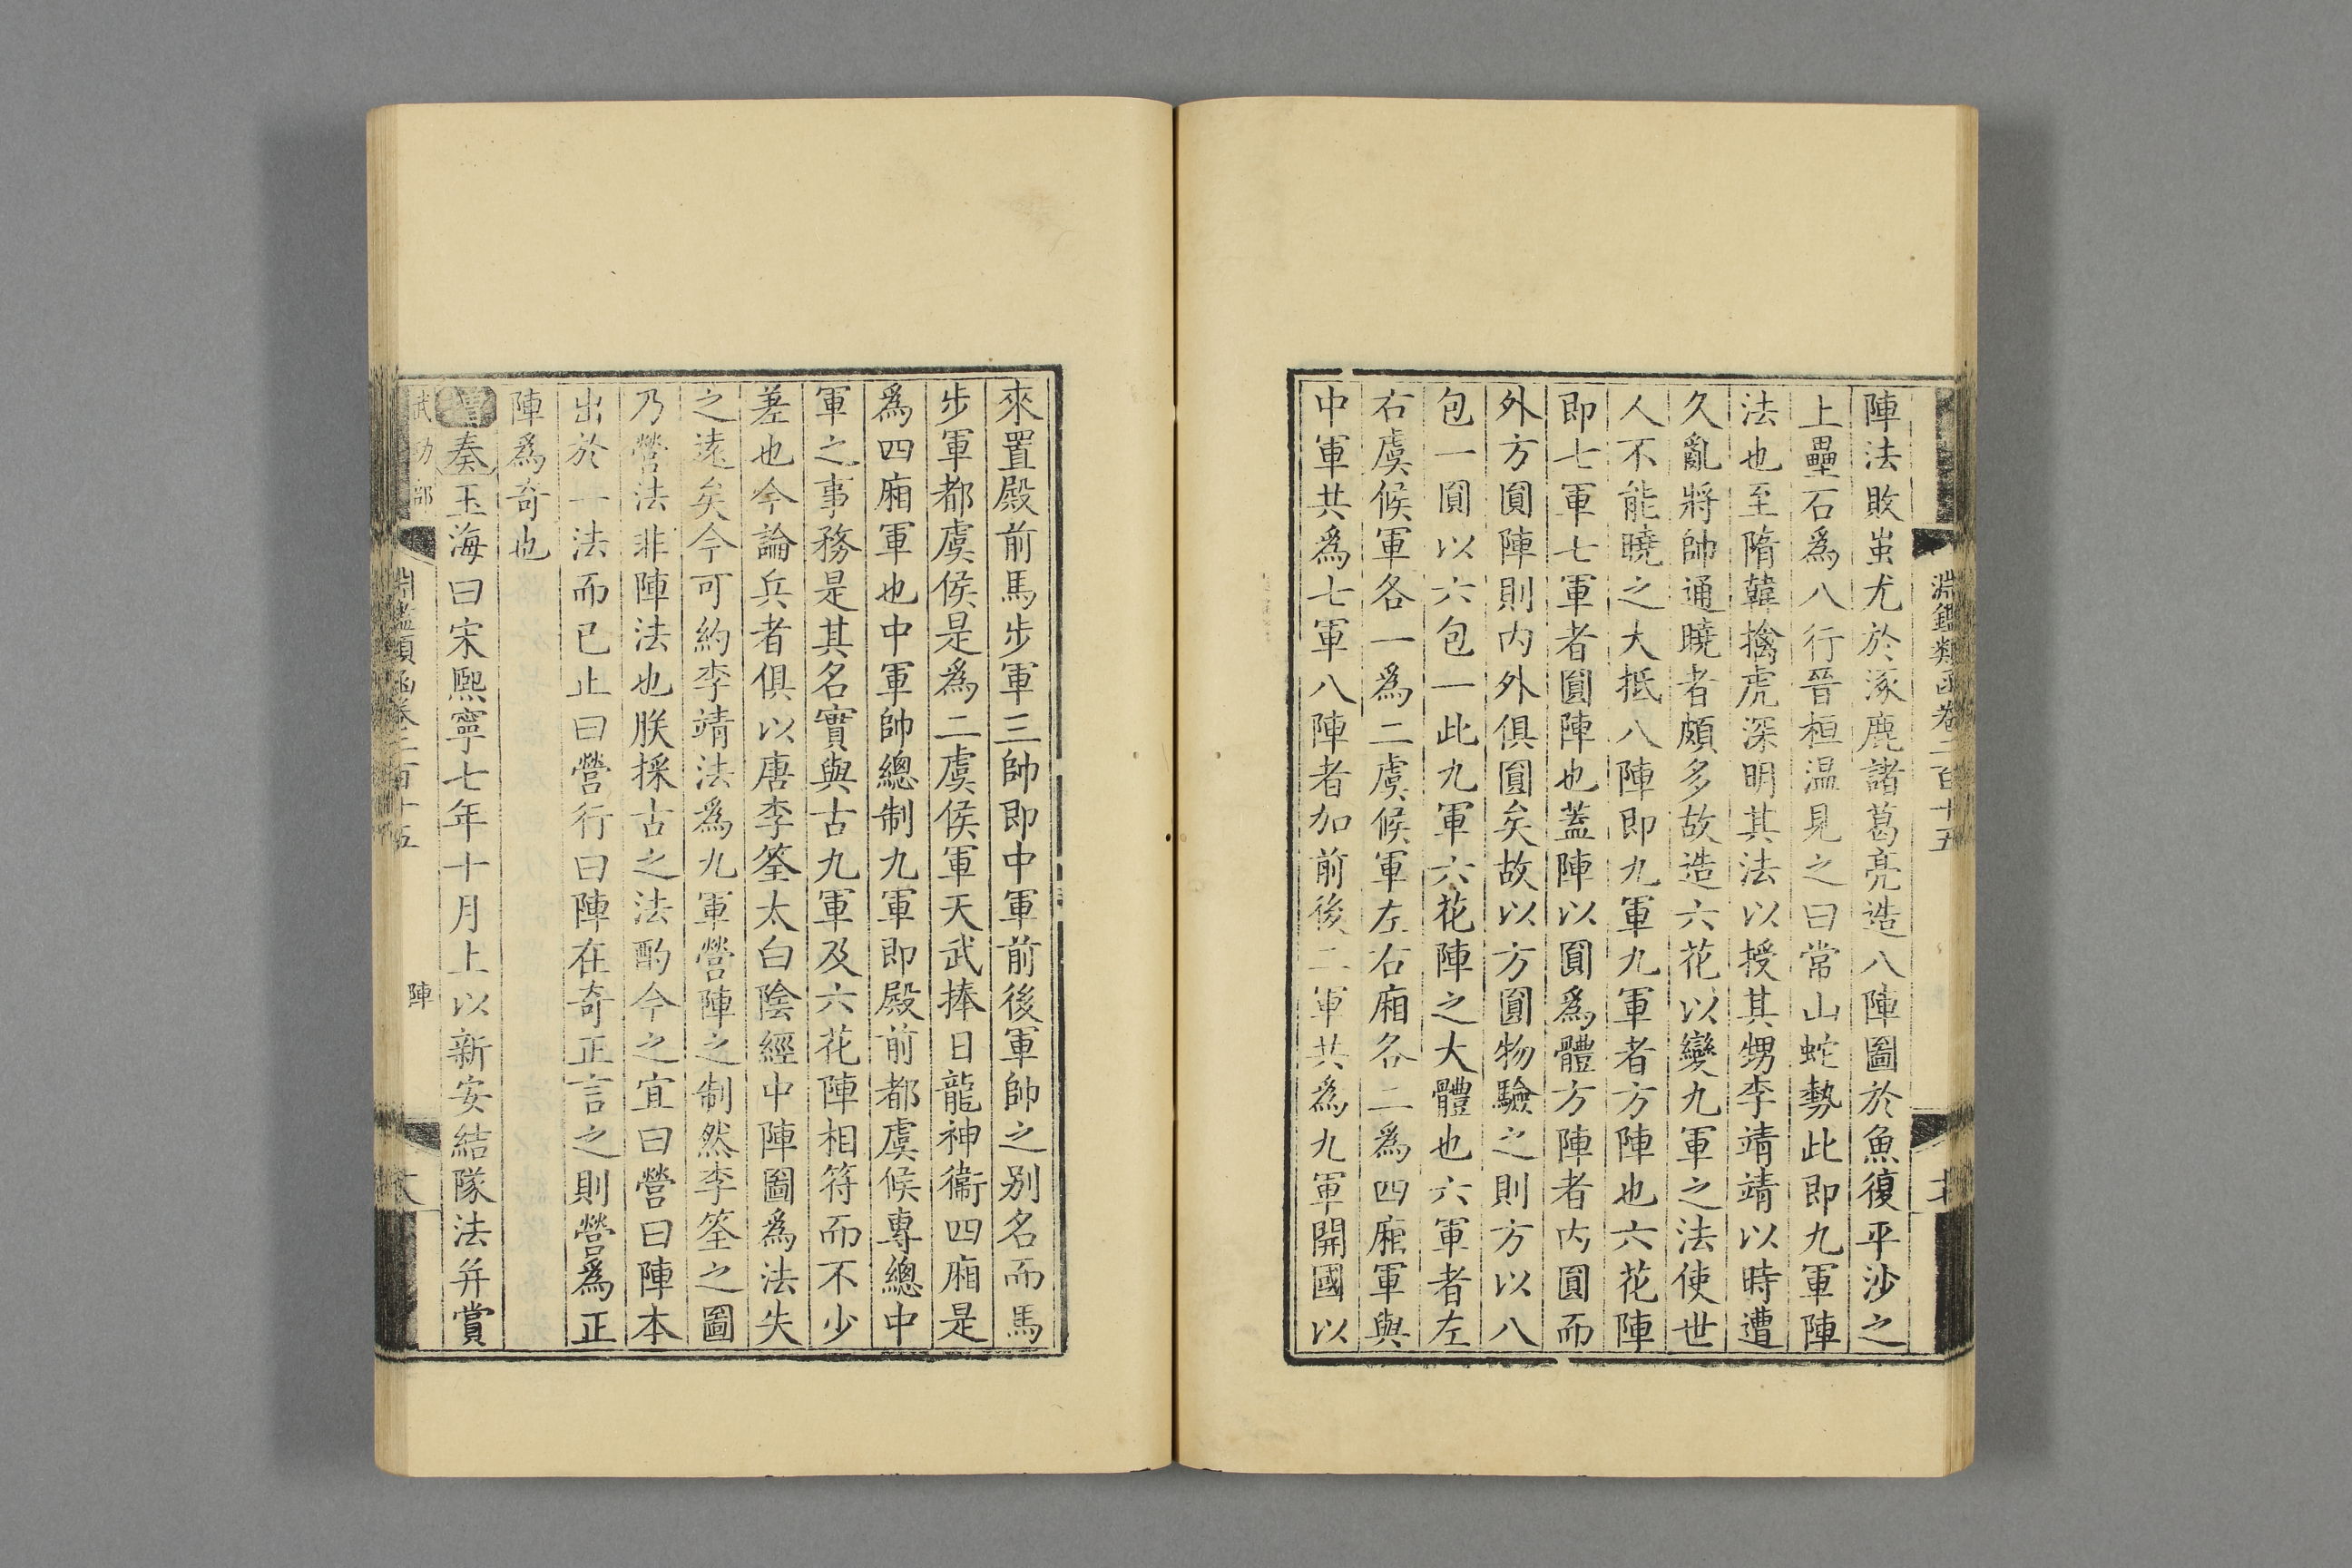 淵鑑類函卷二百十五
陣法敗蚩尤於涿鹿諸葛亮造八陣圖於魚復平沙之
上壘石爲八行晉桓温見之曰常山蛇勢此即九軍陣
法也至隋韓擒虎深明其法以授其甥李靖靖以時遭
久亂將帥通曉者頗多故造六花以變九軍之法使世
人不能曉之大抵八陣即九軍九軍者方陣也六花陣
即七軍七軍者圓陣也蓋陣以圓爲體方陣者内圓而
外方圓陣則内外俱圓矣故以方圓物驗之則方以八
包一圓以六包一此九軍六花陣之大體也六軍者左
右虞候軍各一爲二虞候軍左右廂各二爲四廂軍與
中軍共爲七軍八陣者加前後二軍共爲九軍開國以
來置殿前馬步軍三帥即中軍前後軍帥之别名而馬
步軍都虞侯是爲二虞侯軍天武捧日龍神衛四廂是
爲四廂軍也中軍帥總制九軍即殿前都虞候專總中
軍之事務是其名實與古九軍及六花陣相符而不少
差也今論兵者俱以唐李筌太白陰經中陣圖爲法失
之遠矣今可約李靖法爲九軍營陣之制然李筌之圖
乃營法非陣法也朕採古之法酌今之宜曰營曰陣本
出於一法而已止曰營行曰陣在奇正言之則營爲正
陣爲奇也
奏玉海曰宋熙寧七年十月上以新安結隊法并賞
武功部 淵鑑類函卷二百十五 陣